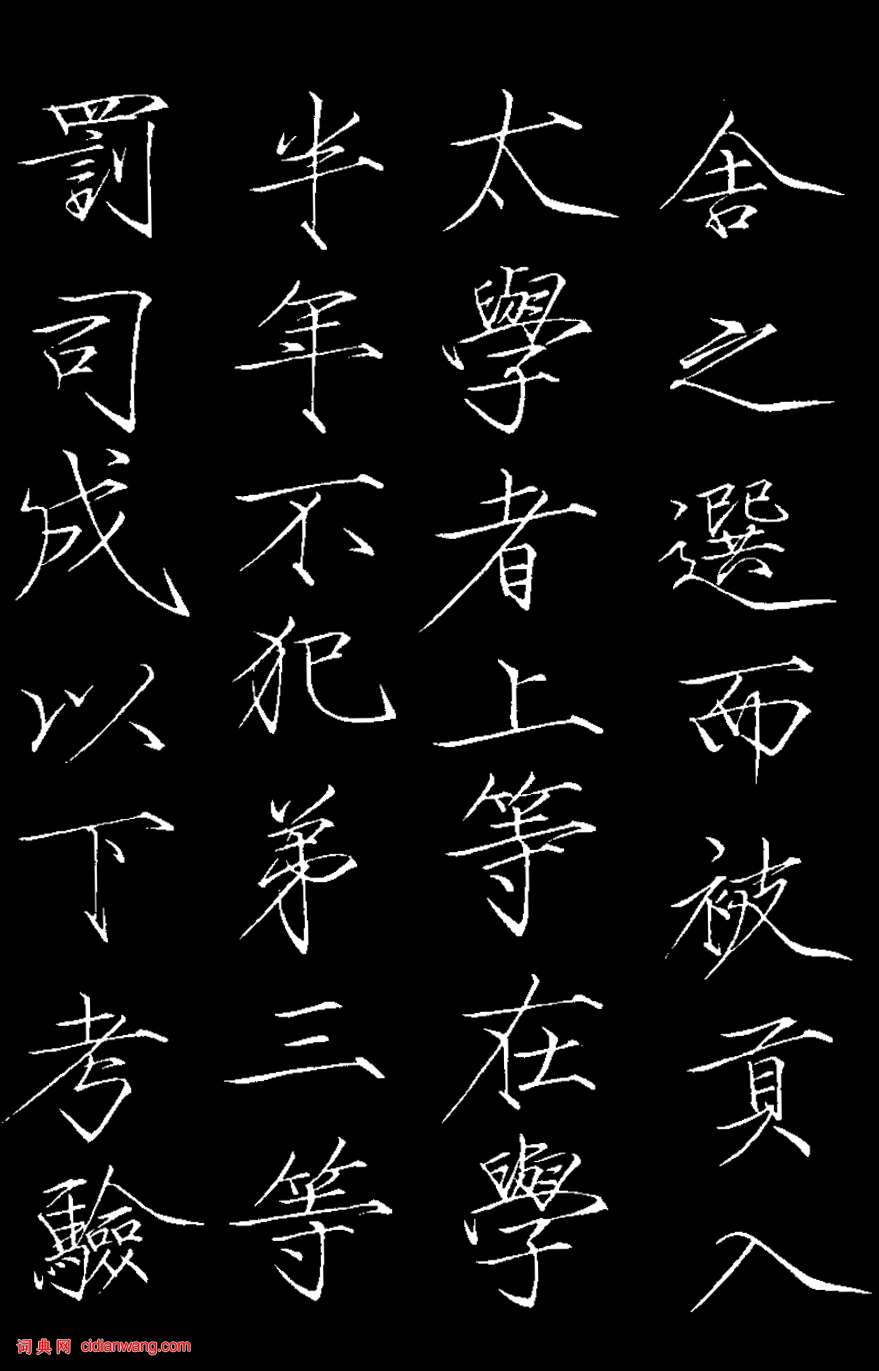 舍之選而被貢入
太學者上等在學
半年不犯弟三等
罰司成以下考驗
词典网 cidianwang.com